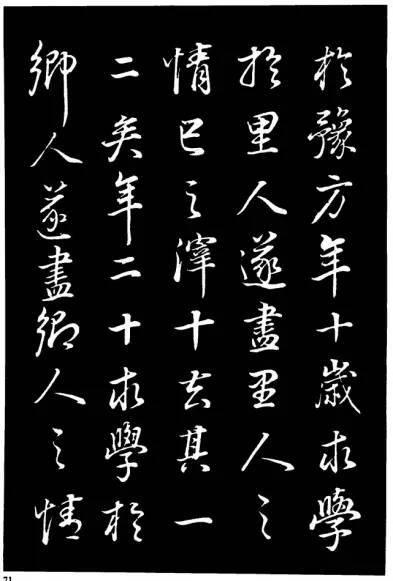 於豫方年十歲求學
於里人遂盡里人之
情己之滓十去其一
二矣年二十求學於
鄉人遂盡鄉人之情